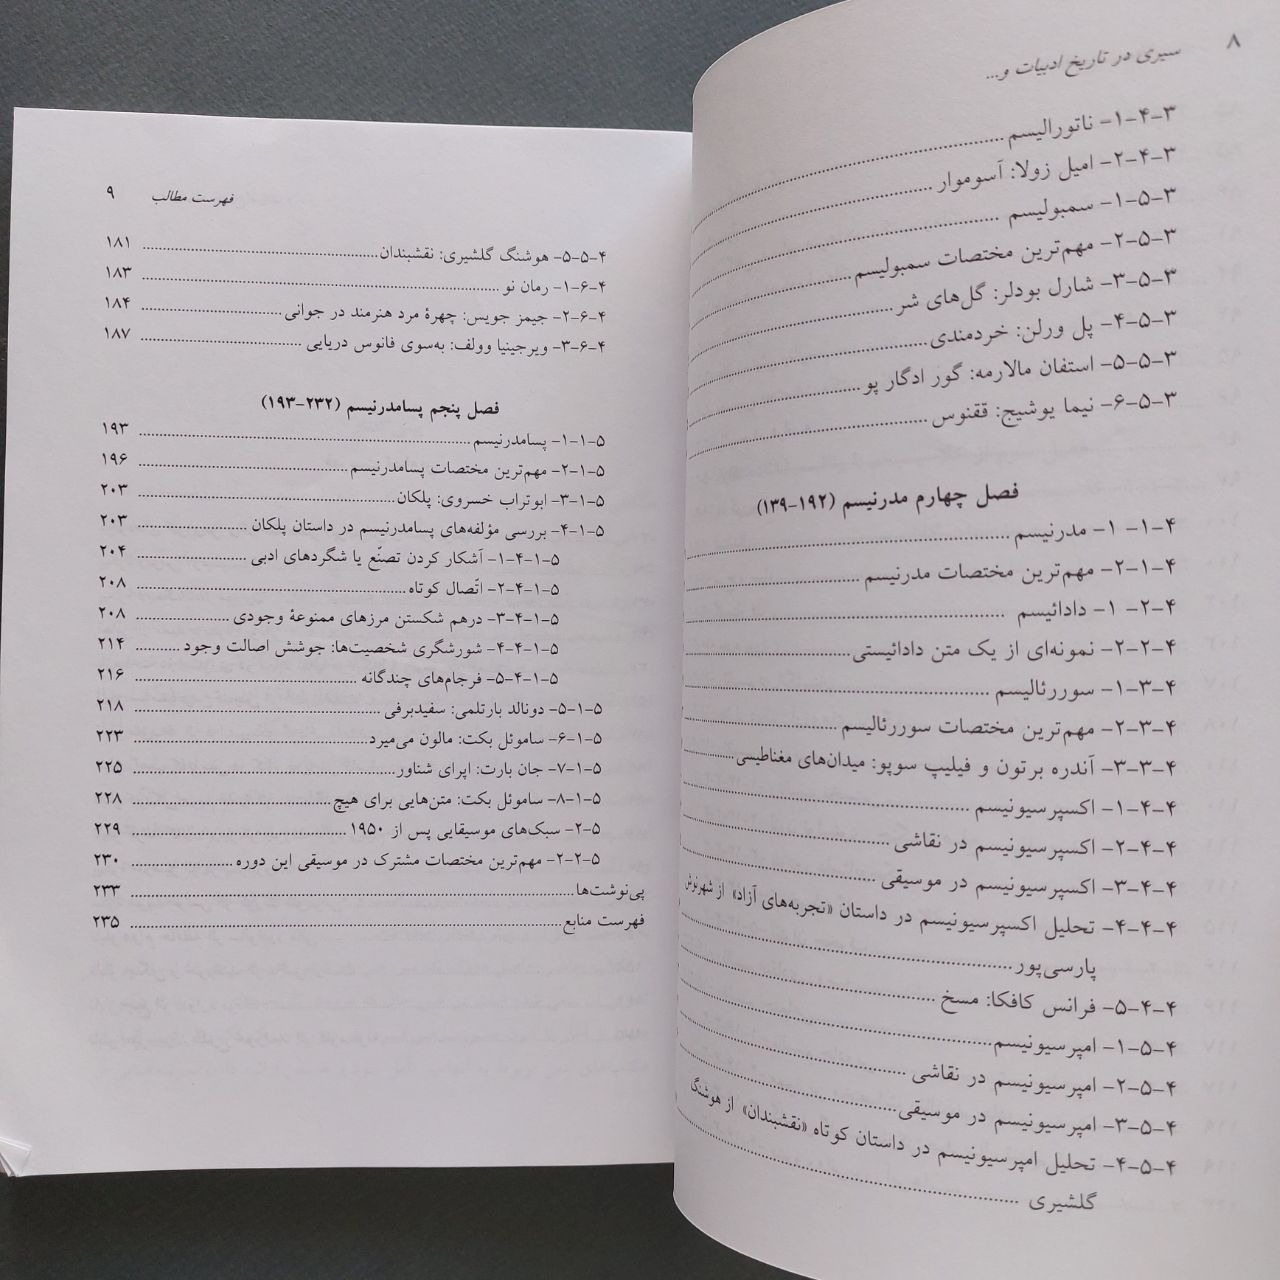 ۸ سیری در تاریخ ادبیات و...
۳-۴-۱- ناتورالیسم
۳-۴-۲- امیل زولا: آسوموار
۳-۵-۱- سمبولیسم
۳-۵-۲- مهم‌ترین مختصات سمبولیسم
۳-۵-۳- شارل بودلر: گل‌های شر
۳-۵-۴- پل ورلن: خردمندی
۳-۵-۵- استفان مالارمه: گور ادگار پو
۳-۵-۶- نیما یوشیج: ققنوس
فصل چهارم مدرنیسم (۱۹۲-۱۳۹)
۴-۱ -۱- مدرنیسم
۴-۱-۲- مهم‌ترین مختصات مدرنیسم
۴-۲ -۱- دادائیسم
۴-۲-۲- نمونه‌ای از یک متن دادائیستی
۴-۳-۱- سوررئالیسم
۴-۳-۲- مهم‌ترین مختصات سوررئالیسم
۴-۳-۳- آندره برتون و فیلیپ سوپو: میدان‌های مغناطیسی
۴-۴-۱- اکسپرسیونیسم
۴-۴-۲- اکسپرسیونیسم در نقاشی
۴-۴-۳- اکسپرسیونیسم در موسیقی
۴-۴-۴- تحلیل اکسپرسیونیسم در داستان «تجربه‌های آزاد» از شهرنوش
پارسی‌پور
۴-۴-۵- فرانس کافکا: مسخ
۴-۵-۱- امپرسیونیسم
۴-۵-۲- امپرسیونیسم در نقاشی
۴-۵-۳- امپرسیونیسم در موسیقی
۴-۵-۴- تحلیل امپرسیونیسم در داستان کوتاه «نقشبندان» از هوشنگ
گلشیری
فهرست مطالب ۹
۴-۵-۵- هوشنگ گلشیری: نقشبندان ۱۸۱
۴-۶-۱- رمان نو ۱۸۳
۴-۶-۲- جیمز جویس: چهرهٔ مرد هنرمند در جوانی ۱۸۴
۴-۶-۳- ویرجینیا وولف: به‌سوی فانوس دریایی ۱۸۷
فصل پنجم پسامدرنیسم (۲۳۲-۱۹۳)
۵-۱-۱- پسامدرنیسم ۱۹۳
۵-۱-۲- مهم‌ترین مختصات پسامدرنیسم ۱۹۶
۵-۱-۳- ابوتراب خسروی: پلکان ۲۰۳
۵-۱-۴- بررسی مؤلفه‌های پسامدرنیسم در داستان پلکان ۲۰۳
۵-۱-۴-۱- آشکار کردن تصنّع یا شگردهای ادبی ۲۰۴
۵-۱-۴-۲- اتّصال کوتاه ۲۰۸
۵-۱-۴-۳- درهم شکستن مرزهای ممنوعهٔ وجودی ۲۰۸
۵-۱-۴-۴- شورشگری شخصیت‌ها: جوشش اصالت وجود ۲۱۴
۵-۱-۴-۵- فرجام‌های چندگانه ۲۱۶
۵-۱-۵- دونالد بارتلمی: سفیدبرفی ۲۱۸
۵-۱-۶- ساموئل بکت: مالون می‌میرد ۲۲۳
۵-۱-۷- جان بارت: اپرای شناور ۲۲۵
۵-۱-۸- ساموئل بکت: متن‌هایی برای هیچ ۲۲۸
۵-۲- سبک‌های موسیقایی پس از ۱۹۵۰ ۲۲۹
۵-۲-۲- مهم‌ترین مختصات مشترک در موسیقی این دوره ۲۳۰
پی‌نوشت‌ها ۲۳۳
فهرست منابع ۲۳۵